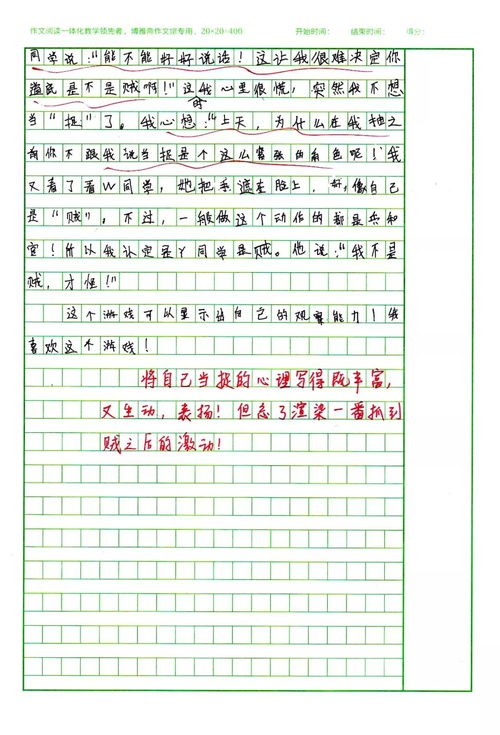 作文阅读一体化教学领先者，博雅斋作文馆专用，20×20=400 开始时间： 结束时间： 得分：
同学说："能不能好好说话！这让我很难决定你
到底是不是贼啊！"这时我心里很慌，突然我不想
当"捉"了。我心想："上天，为什么在我抽之
前你不跟我说当捉是个这么紧张的角色呢！"我
又看了看W同学，她把手遮在脸上，好像自己
是"贼"。不过，一般做这个动作的都是兵和
官！所以我认定是Y同学是贼。他说："我不是
贼，才怪！"
这个游戏可以显示出自己的观察能力！我
喜欢这个游戏！
将自己当捉的心理写得既丰富，
又生动，表扬！但忘了渲染一番抓到
贼之后的激动！